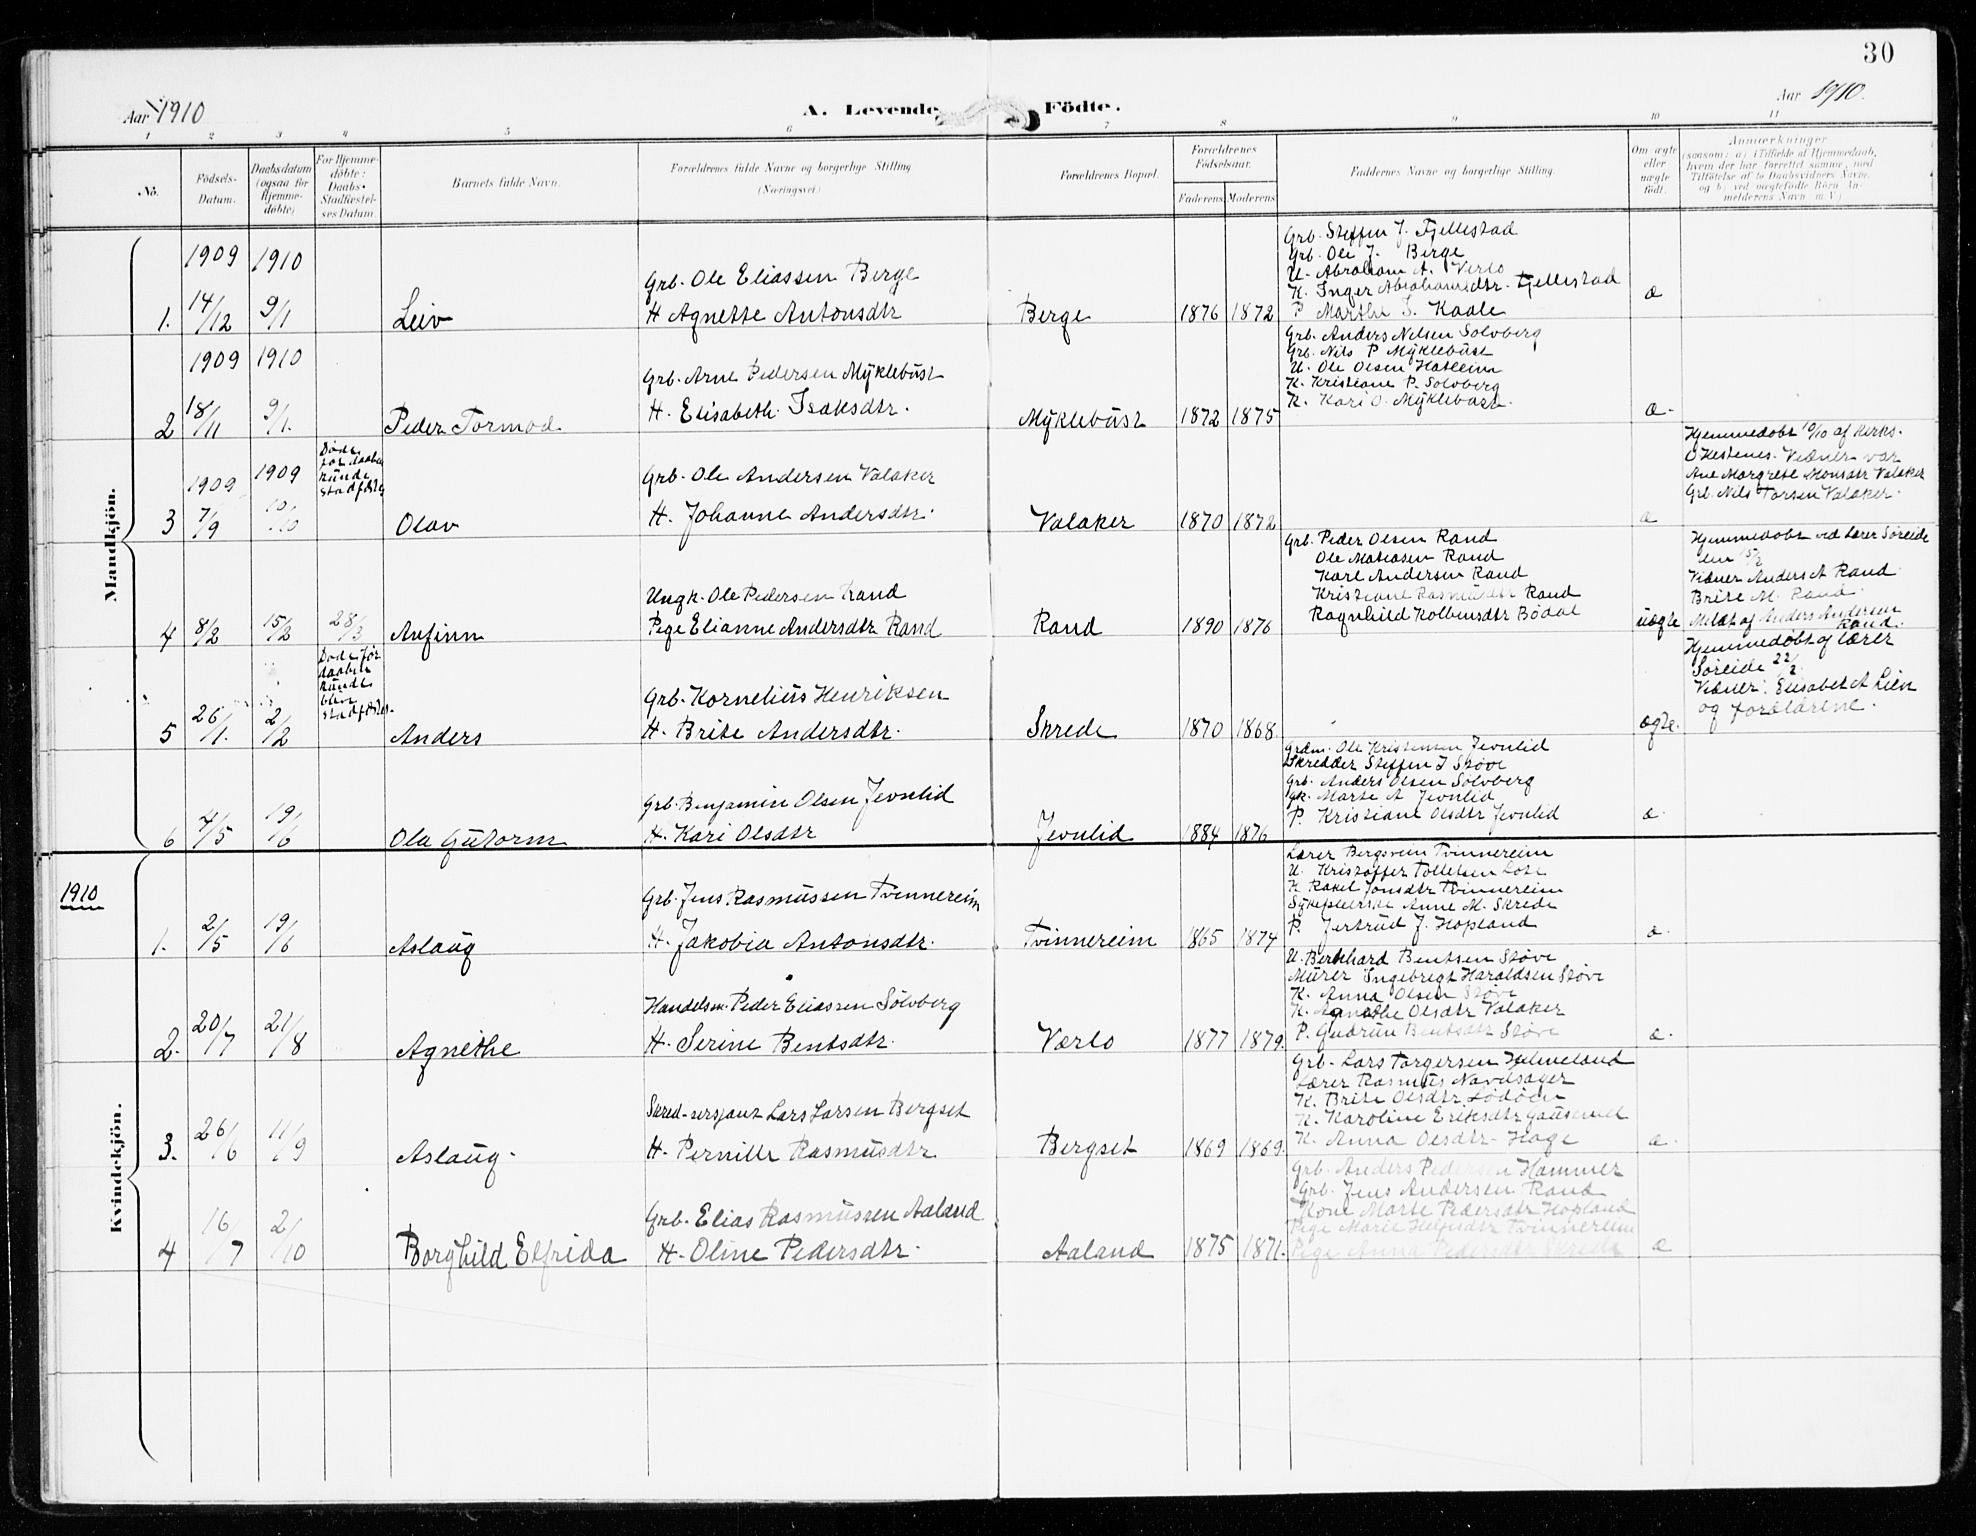 30
Aar 1910
A. Levende Födte.
Aar 1910.
1 2 3 4 5 6 7 8 9 10 11
No.
Födsels-Datum.
Daabsdatum (ogsaa for Hjemme-döbte)
For Hjemme-döbte: Daabs-Stadfæstel-ses Datum.
Barnets fulde Navn.
Forældrenes fulde Navne og borgerlige Stilling (Næringsvei)
Forældrenes Bopæl.
Forældrenes Födselsaar.
Faderens Moderens
Faddernes Navne og borgerlige Stilling.
Om ægte eller uægte födt.
Anmærkninger
(saasom: a) i Tilfælde af Hjemmedaab,
hvem der har forrettet samme, med
Tilföielse af to Daabsvidners Navne.
og b) ved uægtefödte Börn An-
melderens Navn m.V.)
Mandkjön.
1909 1910
1. 14/12 9/1 Leiv
Grb. Ole Eliassen Berge
H Agnette Antonsdtr
Berge 1876 1872
Grb. Steffen J. Fjellestad
Grb. Ole J. Berge
U. Abraham A. Verlo
K. Inger Abrahamsdtr. Fjellestad
P Marthe S. Kaale
æ
1909 1910
2 18/11 9/1. Peder Tormod
Grb. Arne Pedersen Myklebust
H. Elisabeth Isaksdtr.
Myklebust 1872 1875
Grb. Anders Nilsen Solvberg
Grb. Nils P Myklebust
U. Ole Olsen Hatleim
K. Kristiane P. Solvberg
K. Kari O. Myklebust.
æ.
1909 1909
3 7/9 10/10
Døde før daaben kunde stadfæstes
Olav
Grb. Ole Andersen Valaker
H. Johanne Andersdtr.
Valaker 1870 1872
æ
Hjemmedøbt 10/10 af Kirks.
O Hestenes. Vidner var
Ane Margrete Monsdtr Valaker
Grb. Nils Torsen Valaker.
4 8/2 15/2 28/3 Anfinn
Ungk. Ole Pedersen Rand
Pige Elianne Andersdtr Rand
Rand 1890 1876
Grb. Peder Olsen Rand
Ole Matiasen Rand
Karl Andersen Rand
Kristiane Rasmusdtr Rand
Ragnhild Kolbensdtr Bødal
uægte
Hjemmedøbt ved Lærer Søreide
den 15/2
Vidner Anders A Rand
Brite M. Rand.
Meldt af Anders Andersen
Rand.
5 26/1. 2/2
Døde før daaben kunde blive stadfæstes.
Anders
Grb. Kornelius Henriksen
H. Brite Andersdtr.
Skrede 1870 1868.
ægte.
Hjemmedøbt af lærer
Søreide 22/2.
Vidner: Elisabet A Lien
og forældrene.
6 4/5 19/6 Ola Gutorm
Grb. Benjamin Olsen Jevnlid
H. Kari Olsdtr
Jevnlid 1884 1876
Grdm. Ole Kristensen Jevnlid
Skredder Steffen J Støve
Grb. Anders Olsen Solvberg
Gk. Marte A Jevnlid
P. Kristiane Olsdtr Jevnlid
æ.
1910
Kvindekjön.
1. 2/5 19/6 Aslaug
Grb. Jens Rasmussen Tvinnereim
H. Jakobia Antonsdtr.
Tvinnereim 1865 1874
Lærer Bergsvein Tvinnereim
U. Kristoffer Tollefsen Lote
K Rakel Jonsdtr Tvinnereim
Sykepleierske Anne M. Skrede
P. Jertrud J. Hopland
æ.
2. 20/7 21/8 Agnethe
Handelsm. Peder Eliassen Sölvberg
H. Serine Bentsdtr.
Værlo 1877 1879.
U. Bernhard Bentsen Støve
Murer Ingebregt Haraldsen Støve
K. Anna Olsen Støve
K. Agnethe Olsdtr Valaker
P. Gudrun Bentsdtr Støve
æ.
3. 26/6 11/9 Aslaug.
Skred-sersjant Lars Larsen Bergset
H. Pernille Rasmusdtr
Bergset 1869 1869.
Grb. Lars Torgersen Hilmeland
Lærer Rasmus Navdsager
K. Brite Olsdtr Lødøen
K. Karoline Eriksdtr Gausemel
K. Anna Olsdtr. Hage
æ.
4 16/7 2/10 Borghild Elfrida
Grb. Elias Rasmussen Aaland
H. Oline Pedersdtr.
Aaland 1875 1871.
Grb. Anders Pedersen Hammer
Grb. Jens Andersen Rand
Kone Marte Pedersdtr Hopland
Pige Marie Helgesdtr Tvinnereim
Pige Anna Pedersdtr Skrede
æ